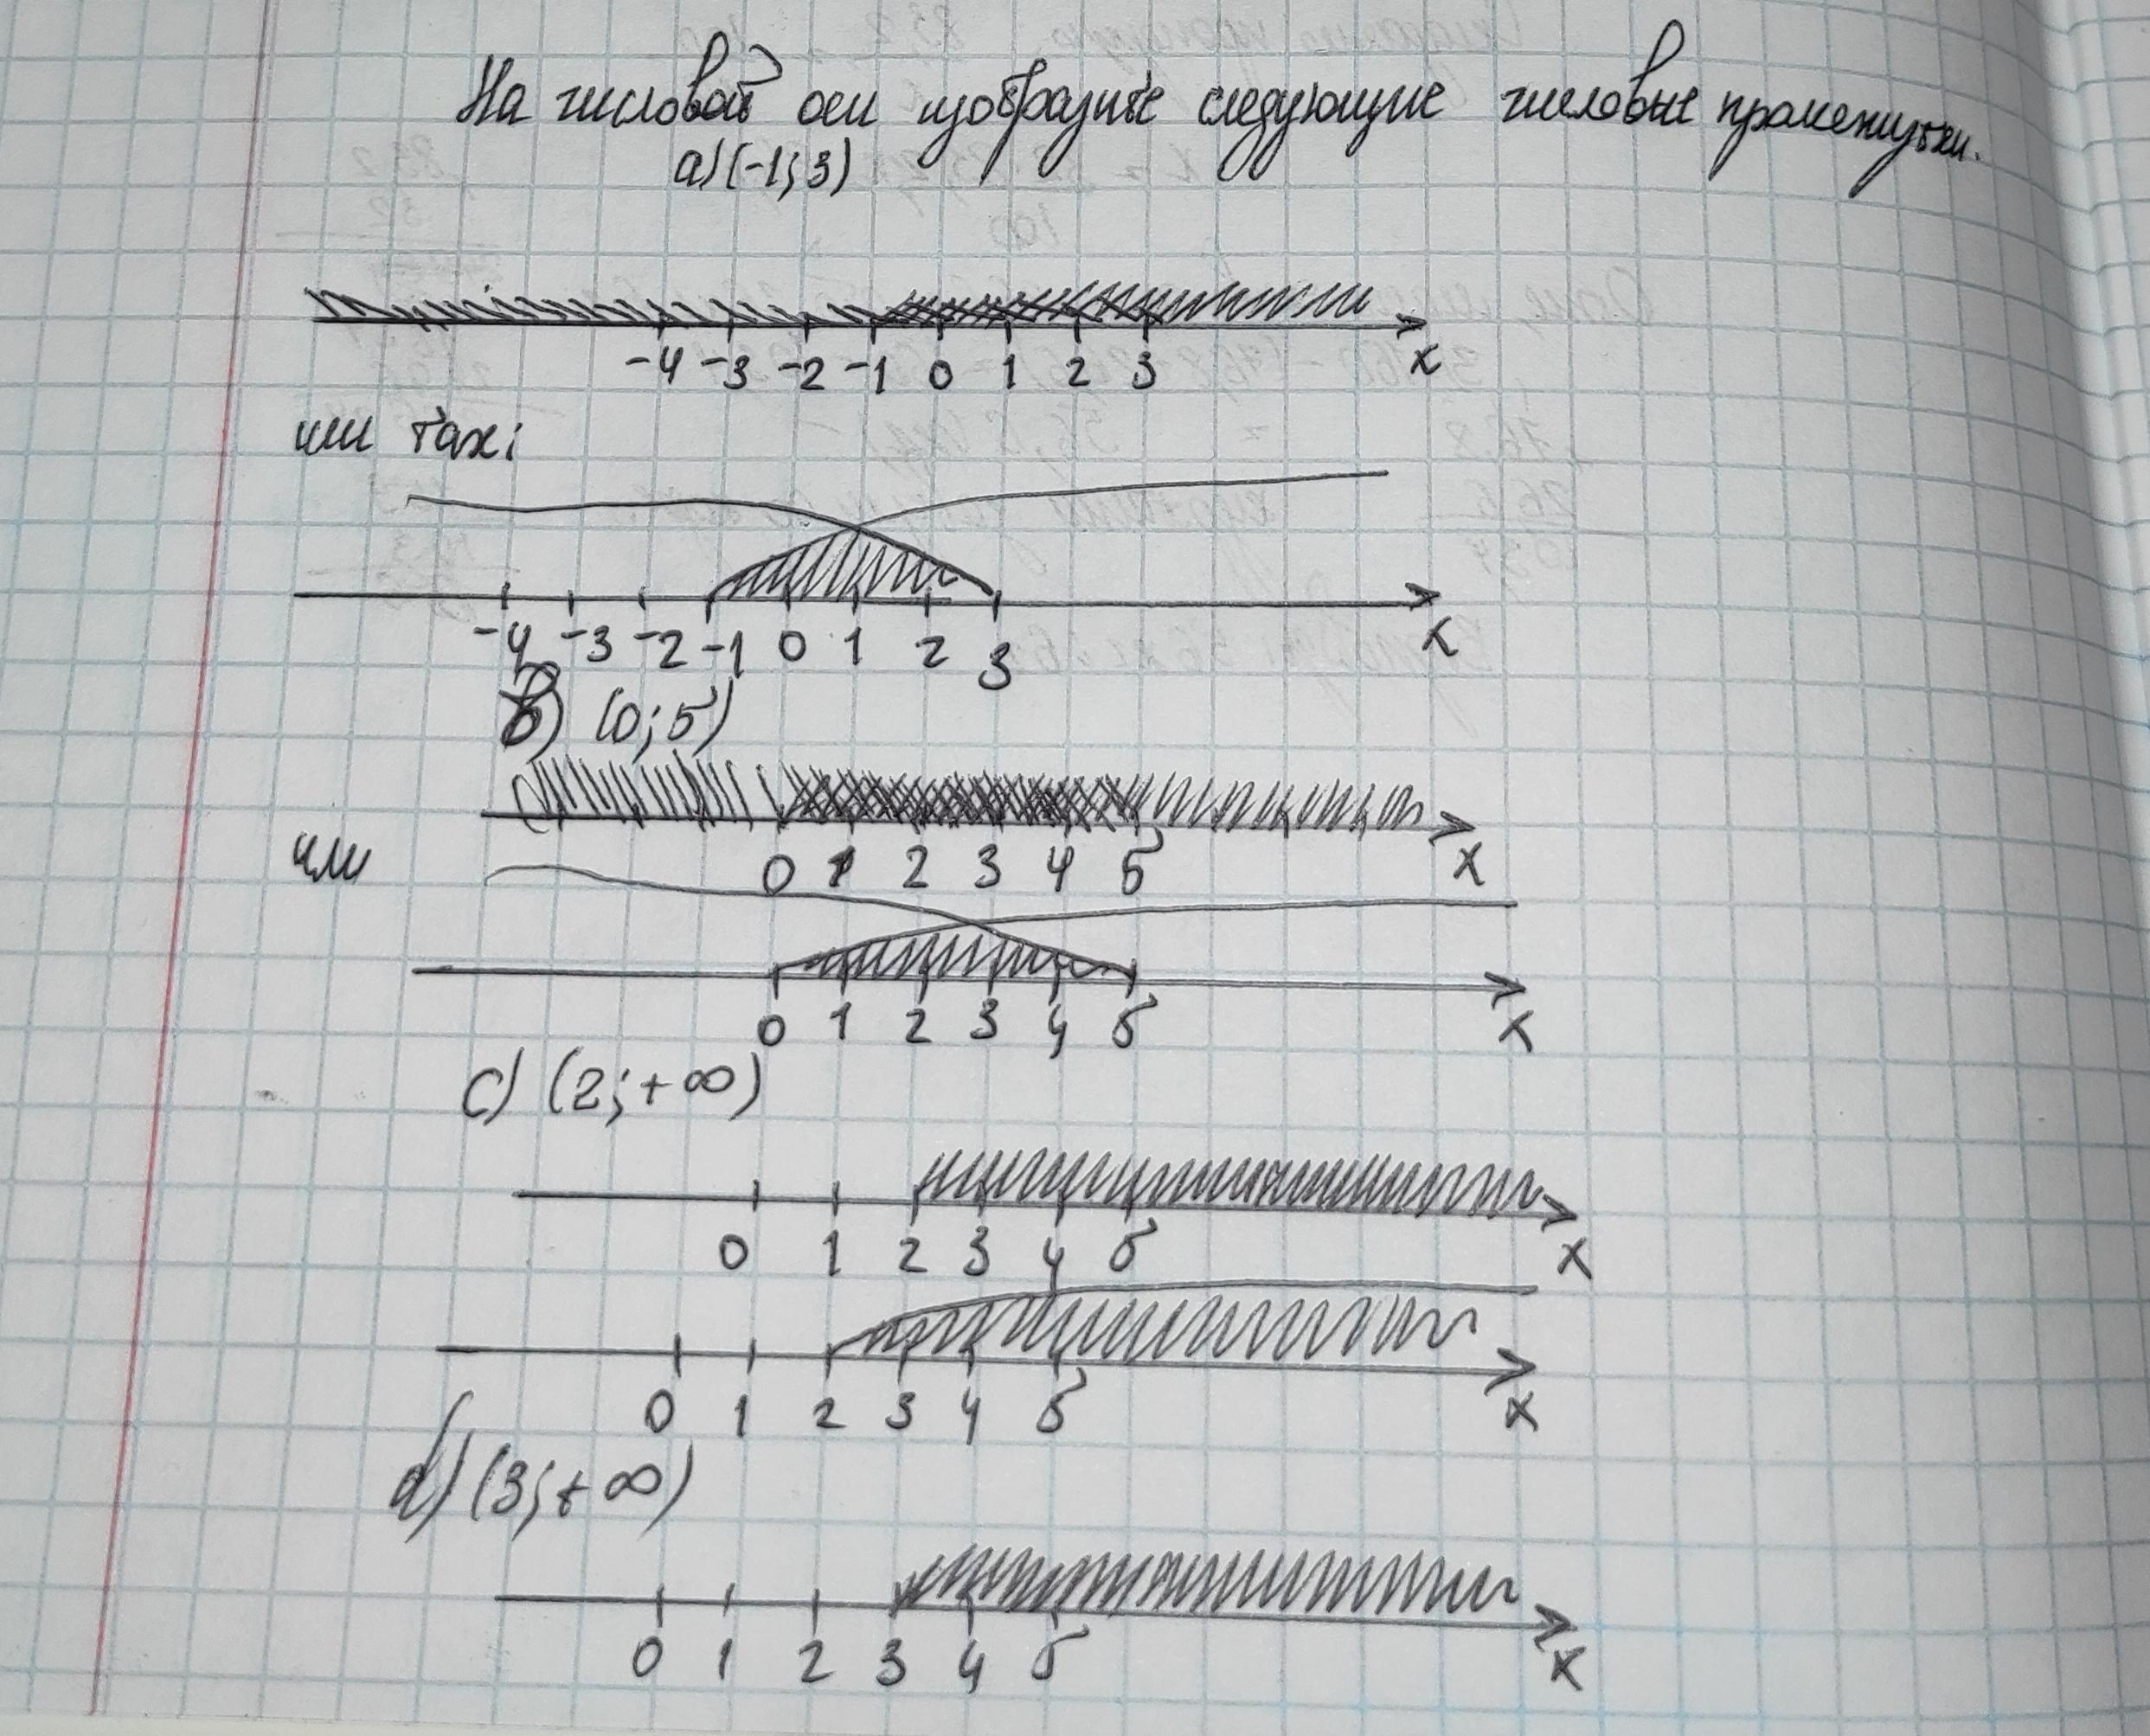 На числовой оси изобразите следующие числовые промежутки.
а) (-1; 3)
-4 -3 -2 -1 0 1 2 3 x
или так:
-4 -3 -2 -1 0 1 2 3 x
в) (0; 5)
0 1 2 3 4 5 x
или
0 1 2 3 4 5 x
c) (2; +∞)
0 1 2 3 4 5 x
0 1 2 3 4 5 x
d) (3; +∞)
0 1 2 3 4 5 x